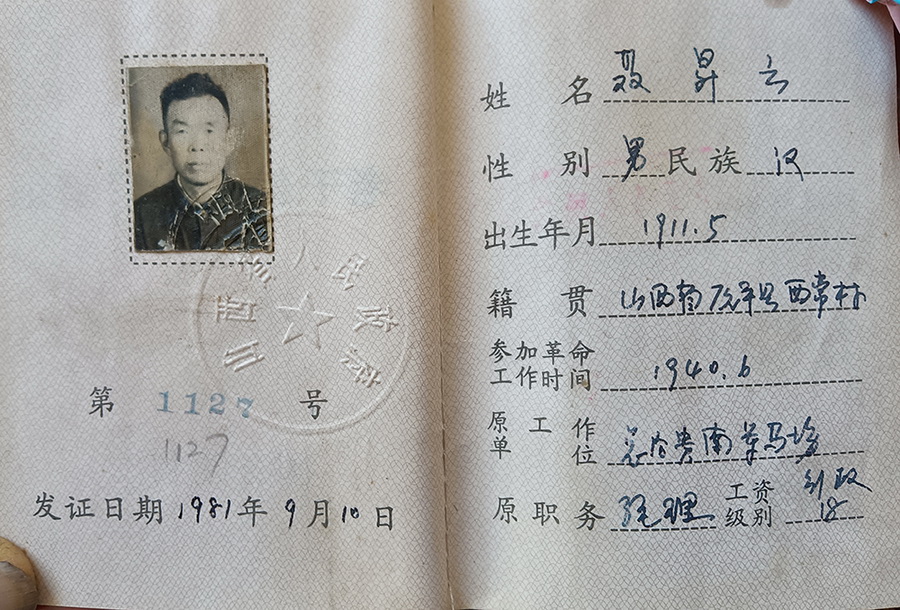 第 1127 号
1127
发证日期 1981年 9月 10日
姓名 聂昇云
性别 男 民族 汉
出生年月 1911.5
籍贯 山西省 县西常林
参加革命工作时间 1940.6
原工作单位
原职务 经理 工资级别 行政18